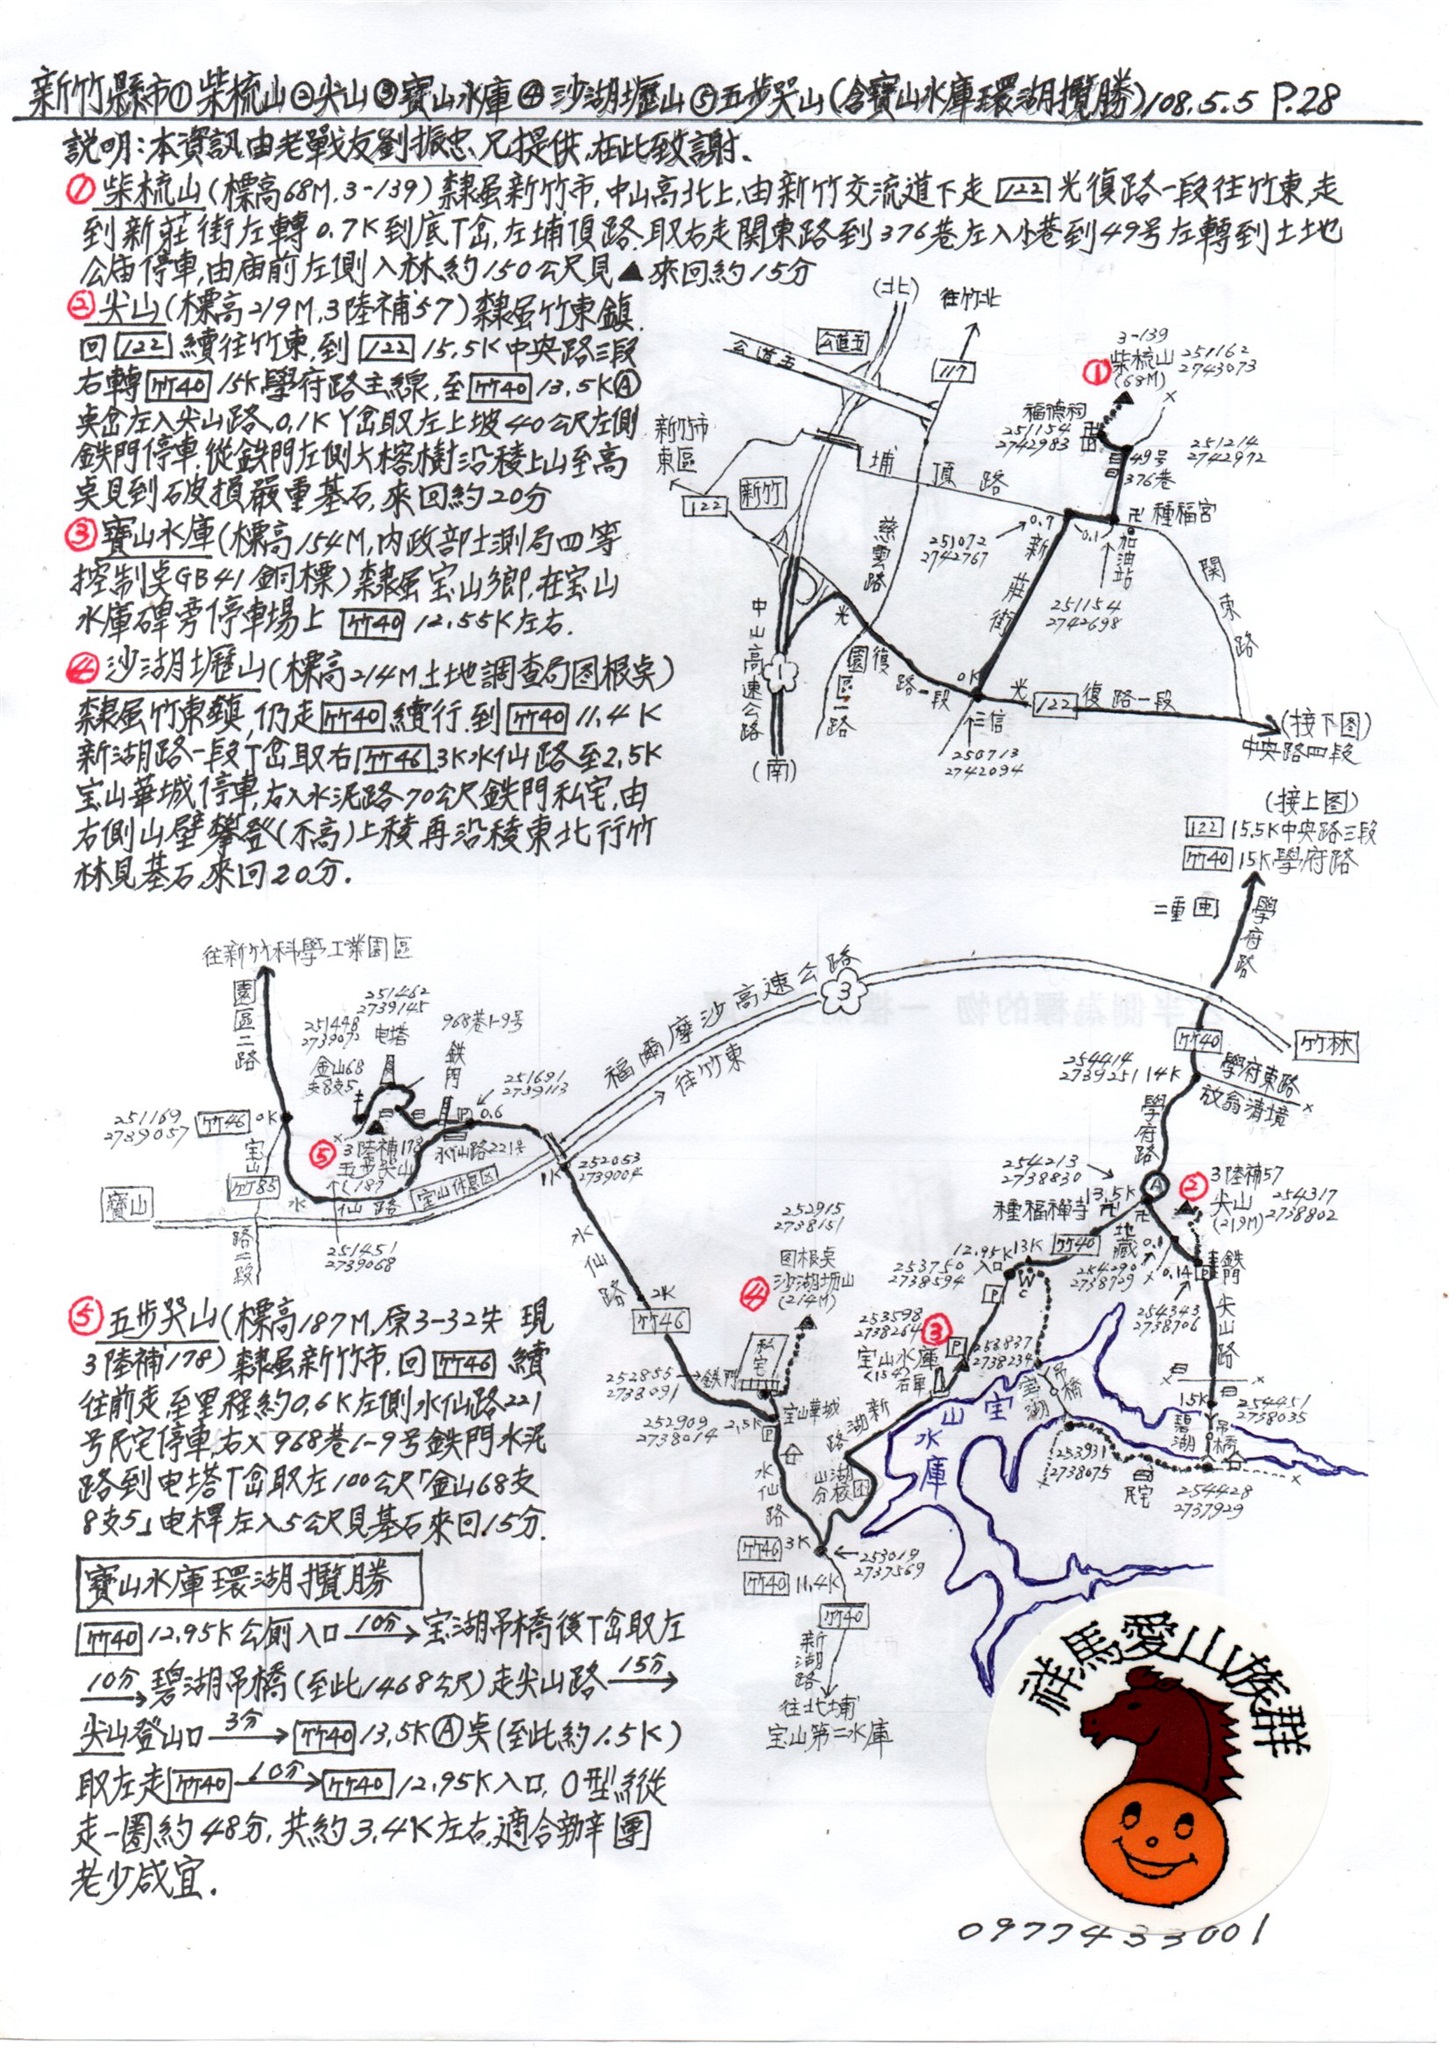 新竹縣市①柴梳山②尖山③寶山水庫④沙湖壢山⑤五步哭山(含寶山水庫環湖攬勝)108.5.5 P.28
説明:本資訊由老戰友劉振忠兄提供,在此致謝.
①柴梳山(標高68M,3-139)隸虽新竹市,中山高北上,由新竹交流道下走122光復路一段往竹東,走
到新莊街左轉0.7K到底T岔,左埔頂路.取右走関東路到376巷左入小巷到49号左轉到土地
公庙停車,由庙前左側入林約150公尺見▲來回約15分
②尖山(標高219M,3陸補57)隸虽竹東鎮.
回122續往竹東,到122 15.5K中央路三段
右轉竹40 15K學府路主線,至竹40 13.5KⒶ
奌岔左入尖山路,0.1K Y岔取左上坡40公尺左側
鉄門停車,從鉄門左側大榕樹沿稜上山至高
奌見到石破損嚴重基石,來回約20分
③寶山水庫(標高154M,内政部土測局四等
控制奌GB41銅標)隸虽宝山鄉,在宝山
水庫碑旁停車場上 竹40 12.55K左右.
④沙湖壢山(標高214M土地調查局图根奌)
隸虽竹東鎮,仍走竹40續行,到竹40 11.4K
新湖路一段T岔取右竹46 3K水仙路至2.5K
宝山華城停車,右入水泥路70公尺鉄門私宅,由
右側山壁攀登(不高)上稜再沿稜東北行竹
林見基石,來回20分.
(北)
往竹北
公道五
公道五
117
3-139
①柴梳山 251162
(68M) 2743073
福德祠
251154
2742983
251214
2742972
49号
376巷
新竹市
東區
122
新竹
埔頂路
慈雲路
0.7
251072
2742767
新莊街
0.1
種福宮
加油站
251154
2742698
関東路
中山高速公路
1
(南)
光復路一段
園區一路
0K
仁信
250713
2742094
光122復路一段
(接下图)
中央路四段
(接上图)
122 15.5K中央路三段
竹40 15K學府路
二重
學府路
往新竹科學工業園區
園區二路
251462
2739145
电塔
251448
2739092
金山68
支8支5
968巷1-9号
鉄門
251691
2739113
0.6
251169
2739057
竹46 0K
宝山路二段
竹85
寶山
⑤3陸補178
五步哭山
(187)
水仙路221号
水仙路
宝山休息区
251451
2739068
福爾摩沙高速公路
3
往竹東
1K
252053
2739004
竹林
竹40
254414
2739251 14K
學府東路
放翁清境
學府路
254213
2738830
種福禪寺
13.5K
Ⓐ
②
3陸補57
尖山 254317
(219M) 2738802
地藏
0.1
254290
2738729
0.14
鉄門
254343
2738706
尖山路
竹40
13K
12.95K
入口
WC
253750
2738594
水仙路
2K
竹46
252915
2738151
图根奌
④沙湖壢山
(214M)
私宅
252855
2738091
鉄門
252909
2738014
2.5K
宝山華城
③
253598
2738264
宝山水庫
(154)
石庫
253837
2738234
宝湖吊橋
宝山水庫
新湖路
山湖分校
1.5K
254451
2738035
碧湖吊橋
253931
2738075
民宅
254428
2737929
水仙路
竹46 3K
竹40 11.4K
253019
2737569
竹40
新湖路
往北埔
宝山第二水庫
⑤五步哭山(標高187M,原3-32失 現
3陸補178)隸虽新竹市,回竹46 續
往前走,至里程約0.6K左側水仙路221
号民宅停車,右入968巷1-9号鉄門水泥
路到电塔T岔取左100公尺「金山68支
8支5」电桿左入5公尺見基石來回15分.
寶山水庫環湖攬勝
竹40 12.95K公廁入口 10分→宝湖吊橋後T岔取左
10分→碧湖吊橋(至此1468公尺)走尖山路 15分→
尖山登山口 3分→竹40 13.5KⒶ奌(至此約1.5K)
取左走竹40 10分→竹40 12.95K入口,O型縱
走一圈約48分,共約3.4K左右,適合辦團
老少咸宜.
祥馬愛山族群
0977433001